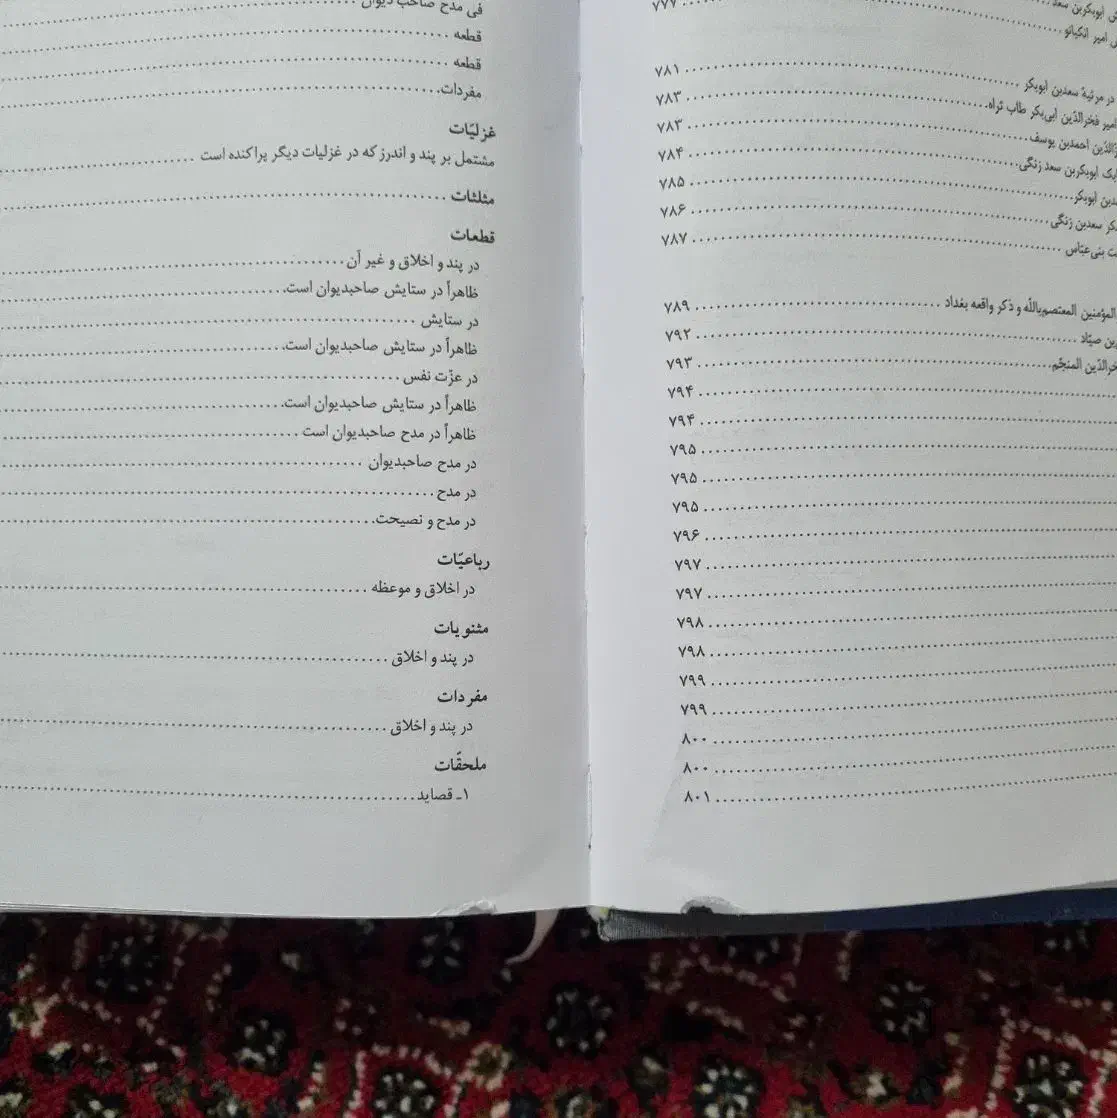 ابوبکربن سعد ........ ۷۷۷
امیر انکیانو ........
در مرثیهٔ سعدبن ابوبکر ........ ۷۸۱
امیر فخرالدّین ابی‌بکر طاب ثراه ........ ۷۸۳
احمدبن یوسف ........ ۷۸۳
ابوبکربن سعد زنگی ........ ۷۸۴
ابوبکر ........ ۷۸۵
سعدبن زنگی ........ ۷۸۶
بنی‌عبّاس ........ ۷۸۷
المؤمنین المعتصم‌باللّه و ذکر واقعه بغداد ........ ۷۸۹
صیّاد ........ ۷۹۲
المنجّم ........ ۷۹۳
........ ۷۹۴
........ ۷۹۴
........ ۷۹۵
........ ۷۹۵
........ ۷۹۵
........ ۷۹۶
........ ۷۹۷
........ ۷۹۷
........ ۷۹۸
........ ۷۹۸
........ ۷۹۹
........ ۷۹۹
........ ۸۰۰
........ ۸۰۰
........ ۸۰۱
فی مدح صاحب دیوان ........
قطعه ........
قطعه ........
مفردات ........
غزلیّات
مشتمل بر پند و اندرز که در غزلیات دیگر پراکنده است ........
مثلثات ........
قطعات
در پند و اخلاق و غیر آن ........
ظاهراً در ستایش صاحبدیوان است ........
در ستایش ........
ظاهراً در ستایش صاحبدیوان است ........
در عزّت نفس ........
ظاهراً در ستایش صاحبدیوان است ........
ظاهراً در مدح صاحبدیوان است ........
در مدح صاحبدیوان ........
در مدح ........
در مدح و نصیحت ........
رباعیّات
در اخلاق و موعظه ........
مثنویات
در پند و اخلاق ........
مفردات
در پند و اخلاق ........
ملحقّات
۱ـ قصاید ........